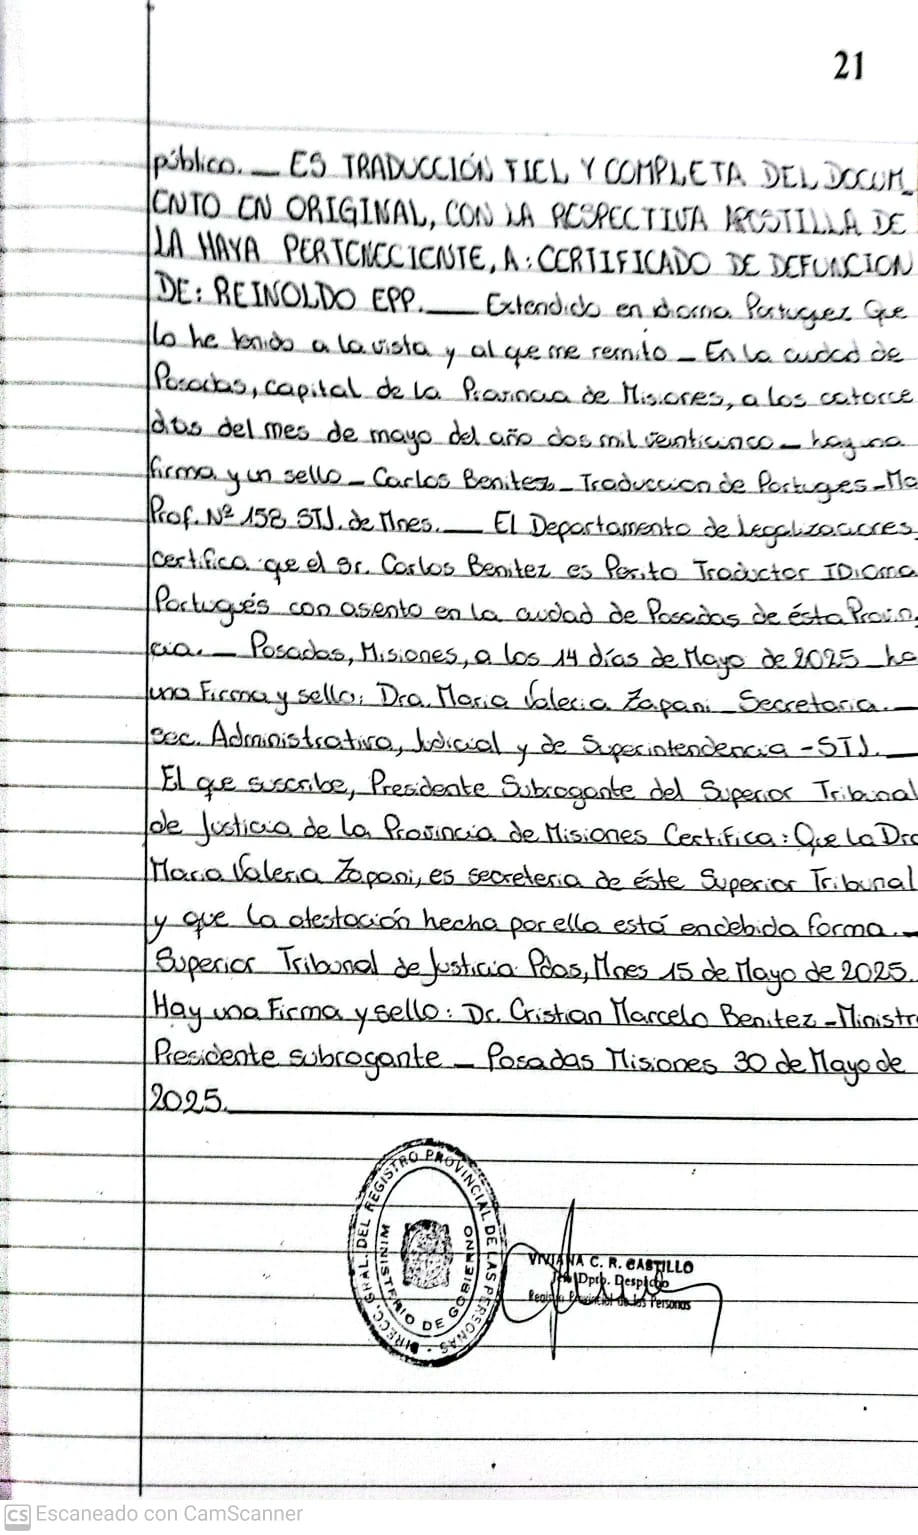 21
público. — ES TRADUCCIÓN FIEL Y COMPLETA DEL DOCUM_
ENTO EN ORIGINAL, CON LA RESPECTIVA APOSTILLA DE
LA HAYA PERTENECIENTE, A: CERTIFICADO DE DEFUNCION
DE: REINOLDO EPP. — Extendido en idioma Portuguez Que
lo he tenido a la vista y al que me remito — En la ciudad de
Posadas, capital de la Provincia de Misiones, a los catorce
días del mes de mayo del año dos mil veinticinco — hay una
firma y un sello — Carlos Benitez — Traduccion de Portuges — Ma
Prof. Nº 158 STJ. de Mnes. — El Departamento de Legalizaciones,
certifica que el Sr. Carlos Benitez es Perito Traductor IDioma
Portugués con asento en la ciudad de Posadas de ésta Provin_
cia. — Posadas, Misiones, a los 14 días de Mayo de 2025 ha
una Firma y sello: Dra. Maria Valeria Zapani — Secretaria. —
Sec. Administrativa, Judicial y de Superintendencia — STJ. —
El que suscribe, Presidente Subrogante del Superior Tribunal
de Justicia de la Provincia de Misiones Certifica: Que la Dra
Maria Valeria Zapani, es secreteria de éste Superior Tribunal
y que la atestación hecha por ella está en debida forma. —
Superior Tribunal de Justicia. Pdas, Mnes 15 de Mayo de 2025.
Hay una Firma y sello: Dr. Cristian Marcelo Benitez — Ministro
Presidente subrogante — Posadas Misiones 30 de Mayo de
2025.
DIRECC. GRAL. DEL REGISTRO PROVINCIAL DE LAS PERSONAS
MINISTERIO DE GOBIERNO
VIVIANA C. R. CASTILLO
Jefa Dpto. Despacho
Registro Provincial de las Personas
CS Escaneado con CamScanner